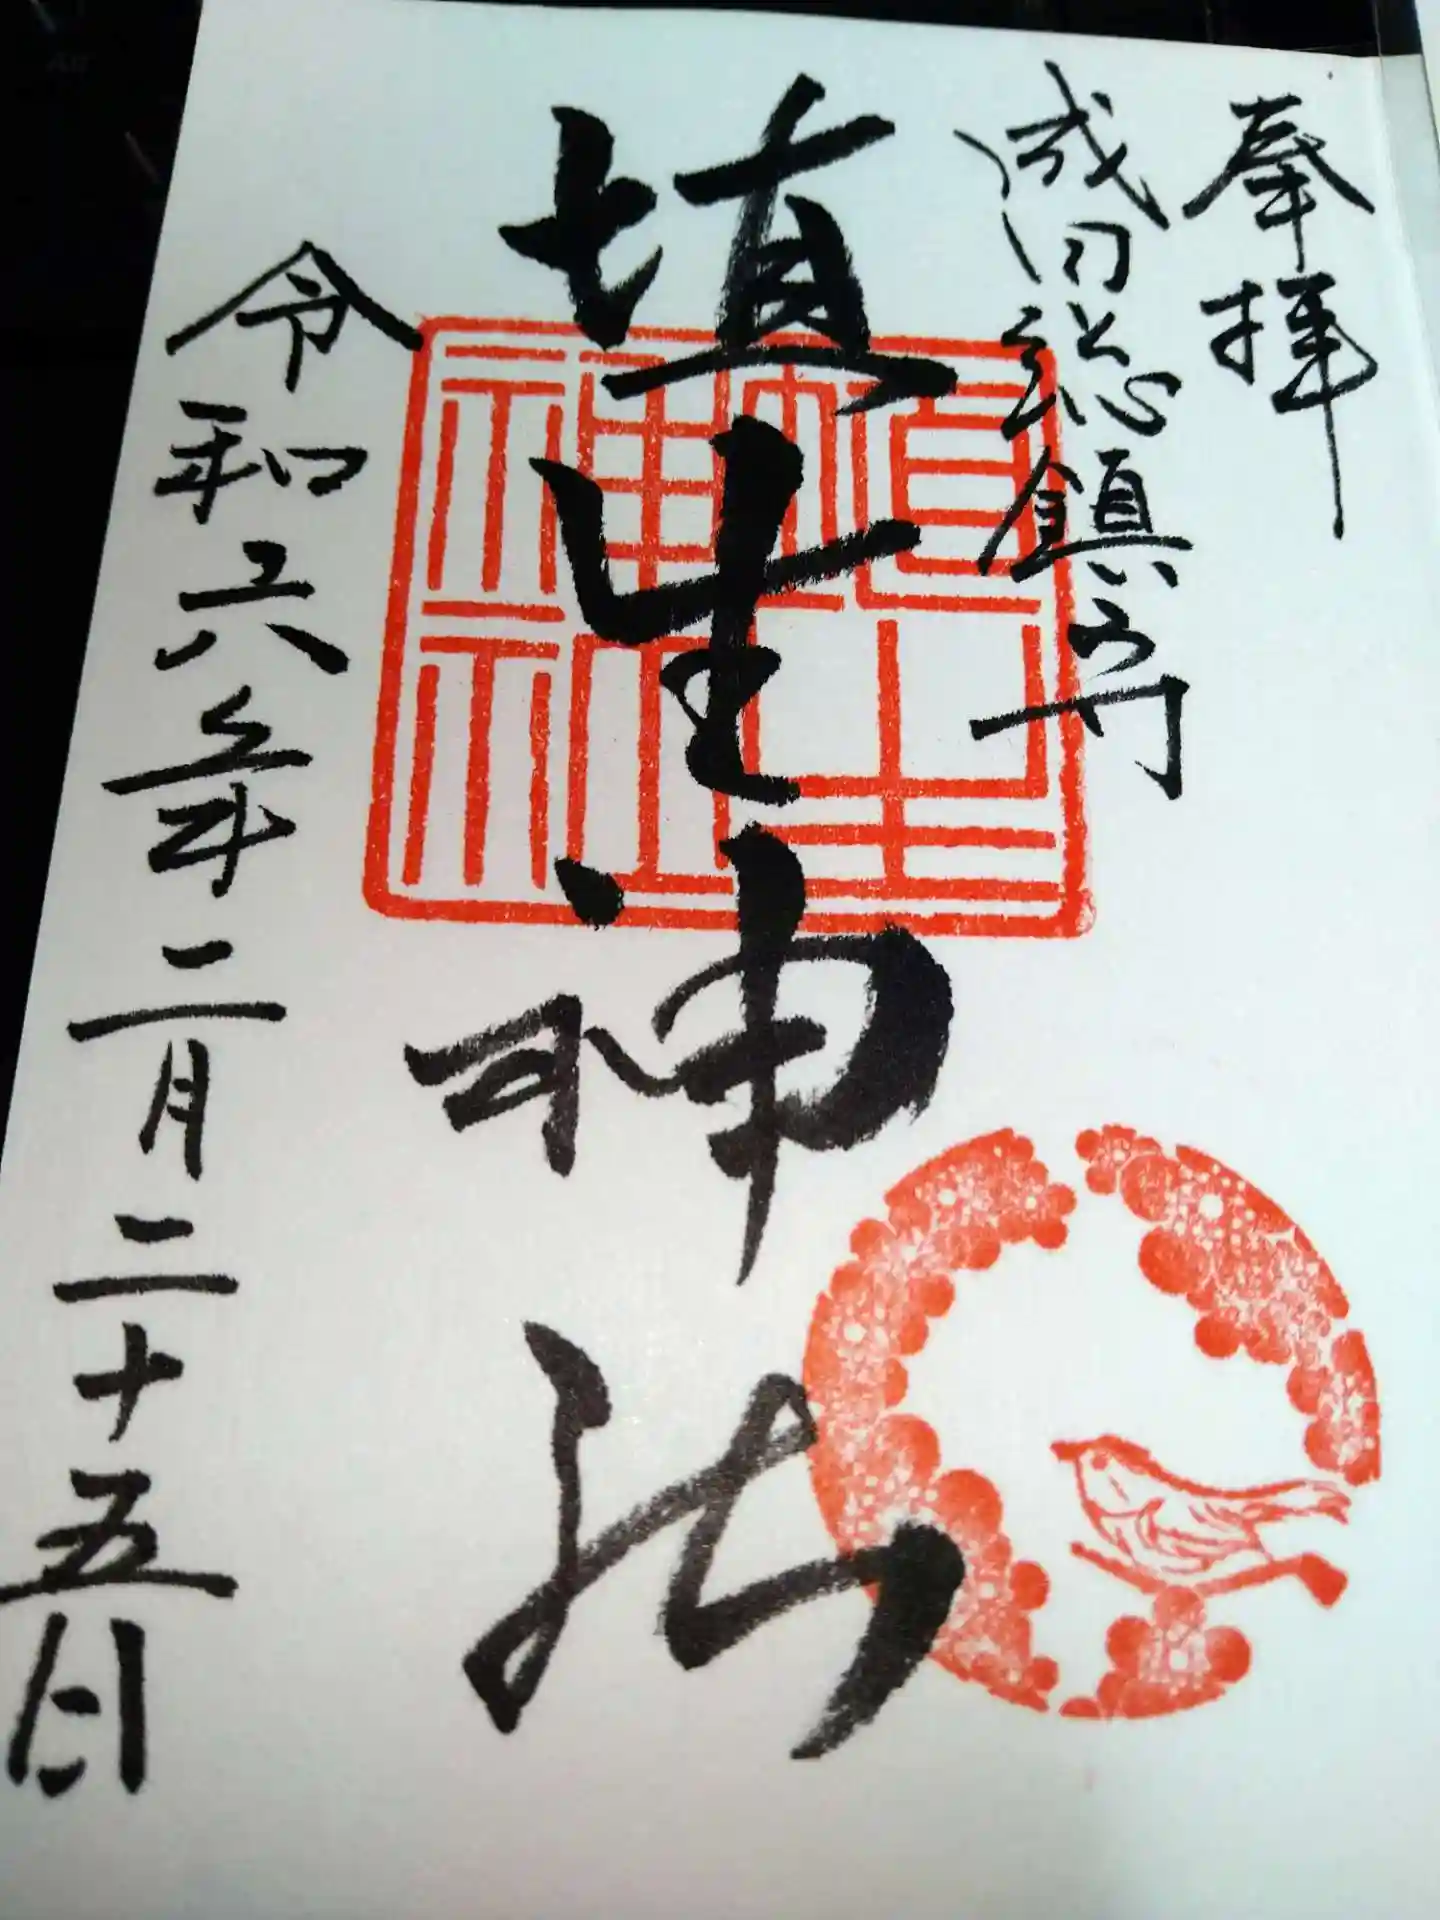 奉拝
成田総鎮守
埴生神社
令和六年二月二十五日
埴生
神社